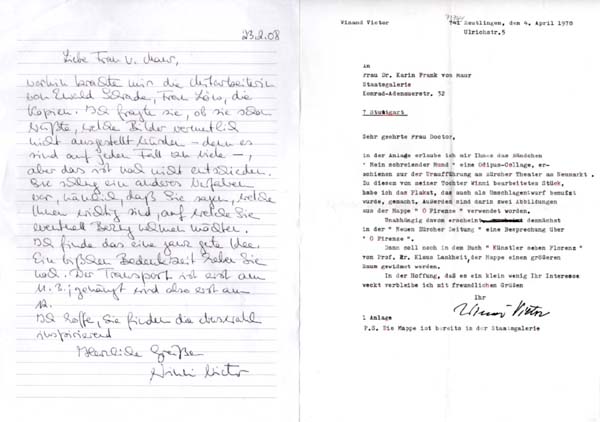 23.2.08
Liebe Frau v. Maur,
vorhin brachte mir die Mitarbeiterin
von Ewald Schrade, Frau Löw, die
Kopien. Ich fragte sie, ob sie schon
wüßte, welche Bilder vermutlich
nicht ausgestellt würden – denn es
sind auf jeden Fall zu viele –,
aber das ist noch nicht entschieden.
Sie schlug ein anderes Verfahren
vor, nämlich, daß Sie sagen, welche
Ihnen wichtig sind, auf welche Sie
eventuell Bezug nehmen möchten.
Ich finde das eine ganz gute Idee.
Ein bißchen Bedenkzeit haben Sie
noch. Der Transport ist erst am
11.3.; gehängt wird also erst am
12.
Ich hoffe, Sie finden die Auswahl
inspirierend
Herzliche Grüße
Winni Victor
Winand Victor
Reutlingen, den 4. April 1970
Ulrichstr.5
An
Frau Dr. Karin Frank von Maur
Staatsgalerie
Konrad-Adenauerstr. 32
7 Stuttgart
Sehr geehrte Frau Doctor,
in der Anlage erlaube ich mir Ihnen das Bändchen
" Mein schreiender Mund " eine Ödipus-Collage, er-
schienen zur der Uraufführung am zürcher Theater am Neumarkt .
Zu diesem von meiner Tochter Winni bearbeitetem Stück,
habe ich das Plakat, das auch als Umschlagentwurf benutzt
wurde, gemacht. Ausserdem sind darin zwei Abbildungen
aus der Mappe " O Firenze " verwendet worden.
Unabhängig davon erscheint demnächst
in der " Neuen Zürcher Zeitung " eine Besprechung über
" O Firenze ".
Dann soll noch in dem Buch " Künstler sehen Florenz "
von Prof. Dr. Klaus Lankheit, der Mappe einen größeren
Raum gewidmet worden.
In der Hoffung, daß es ein klein wenig Ihr Interesse
weckt verbleibe ich mit freundlichen Grüßen
Ihr
Winand Victor
1 Anlage
P.S. Die Mappe ist bereits in der Staatsgalerie